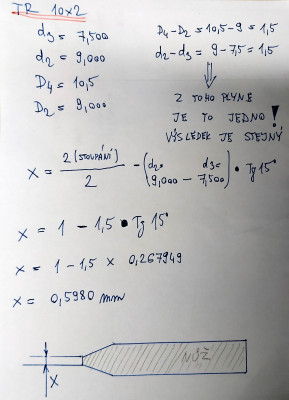 TR 10x2
d3 = 7,500
d2 = 9,000
D4 = 10,5
D2 = 9,000
D4-D2 = 10,5-9 = 1,5
d2-d3 = 9-7,5 = 1,5
Z TOHO PLYNE
JE TO JEDNO!
VÝSLEDEK JE STEJNÝ
x = 2(STOUPÁNÍ)/2 - (d2= 9,000 - d3= 7,500) • Tg 15°
x = 1 - 1,5 • Tg 15°
x = 1 - 1,5 x 0,267949
x = 0,5980 mm
NŮŽ
X